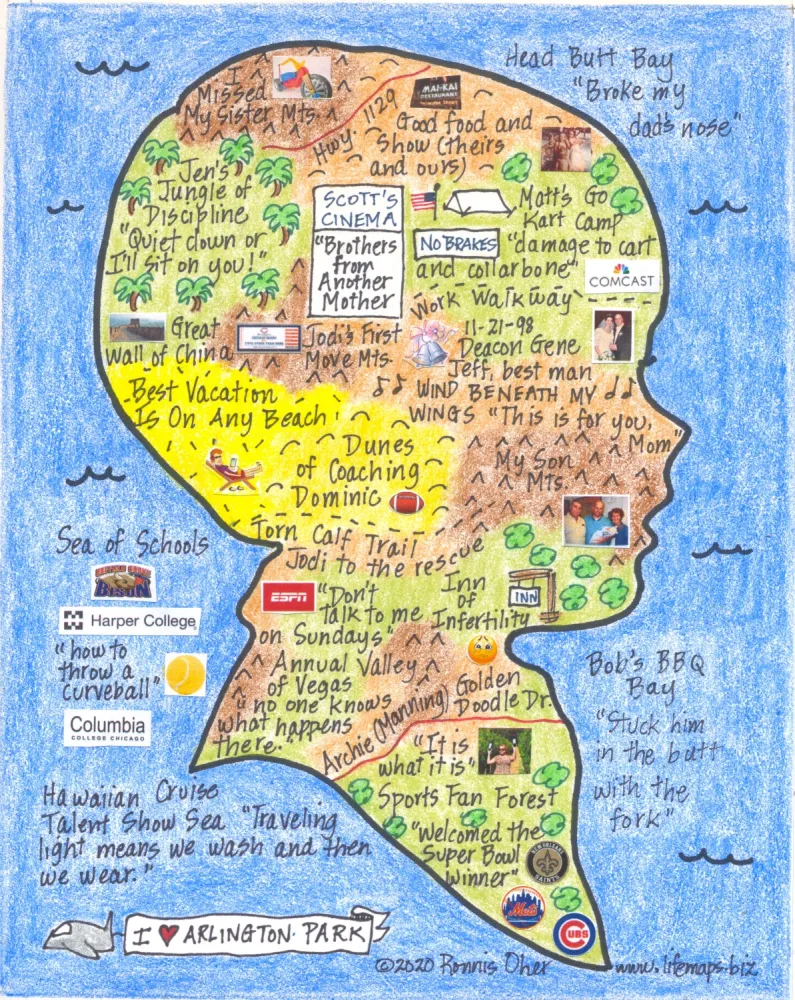 Head Butt Bay
"Broke my
dad's nose"
I
Missed
My Sister Mts.
Hwy. 1129
MAI-KAI
RESTAURANT
Good food and
show (theirs
and ours)
Jen's
Jungle of
Discipline
"Quiet down or
I'll sit on you!"
SCOTT'S
CINEMA
"Brothers
from
Another
Mother
Matt's Go
Kart Camp
NO BRAKES
"damage to cart
and collarbone"
COMCAST
Work Walkway
Great
Wall of China
Jodi's First
Move Mts.
11-21-98
Deacon Gene
Jeff, best man
WIND BENEATH MY
WINGS "This is for you,
Mom"
Best Vacation
Is On Any Beach
Dunes
of Coaching
Dominic
My Son
Mts.
Torn Calf Trail
Jodi to the rescue
Sea of Schools
BISON
Harper College
"how to
throw a
curveball"
Columbia
COLLEGE CHICAGO
ESPN
"Don't
Talk to me
on Sundays"
Inn
of
Infertility
INN
Annual Valley
of Vegas
"no one knows
what happens
there."
Archie (Manning) Golden
Doodle Dr.
Bob's BBQ
Bay
"Stuck him
in the butt
with the
fork"
"It is
what it is"
Sports Fan Forest
"Welcomed the
Super Bowl
Winner"
NEW ORLEANS
SAINTS
Mets
CUBS
Hawaiian Cruise
Talent Show Sea "Traveling
light means we wash and then
we wear."
I ♥ ARLINGTON PARK
©2020 Ronnis Oher
www.lifemaps.biz